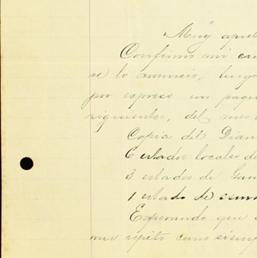 Muy apre
Confirmo mi
se lo anuncié, tengo
por express un paqu
siguientes, del mes
Copia del Diar
6 estados locales de
3 estados de
1 estado de
Esperando que
me repito como siemp